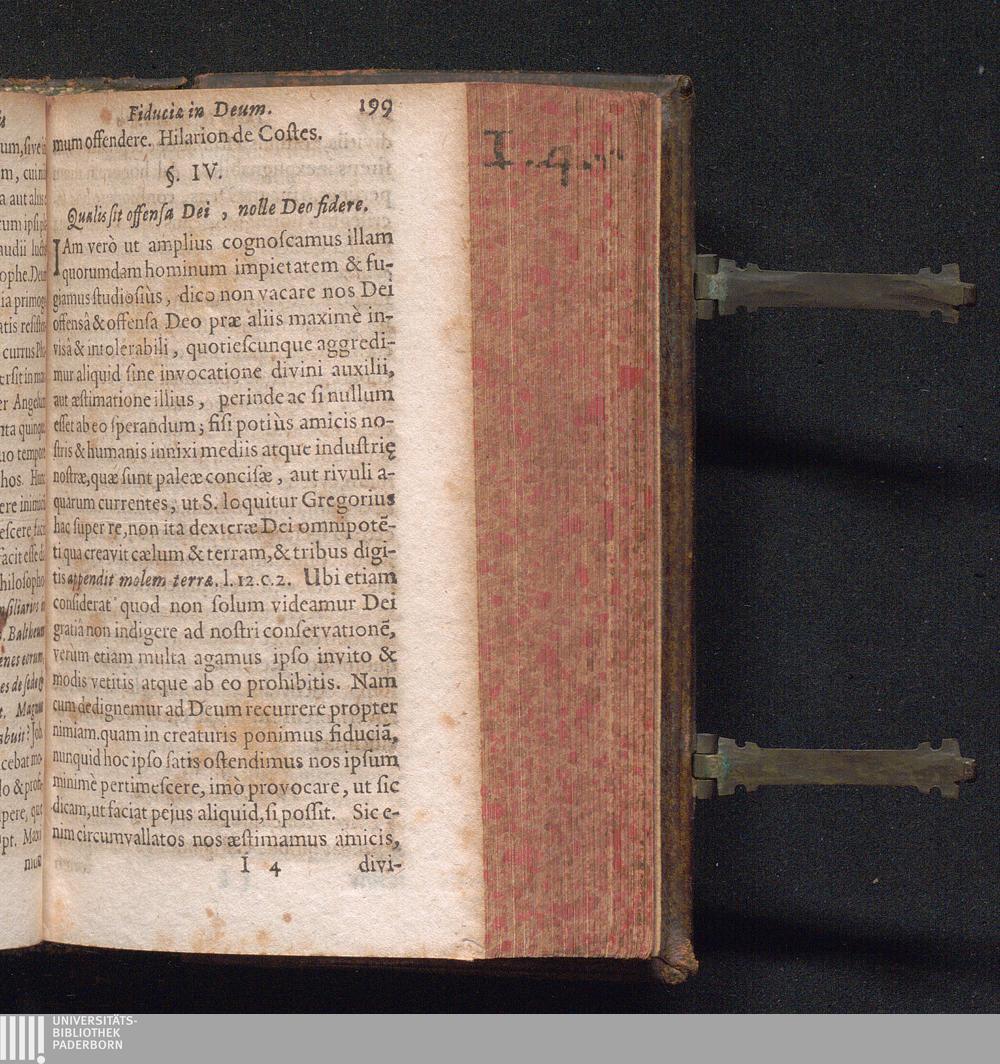 Fiduciæ in Deum. 199
mum offendere. Hilarion de Coſtes.
§. IV.
Qualis ſit offenſa Dei , nolle Deo fidere.
IAm verò ut amplius cognoſcamus illam
quorumdam hominum impietatem & fu-
giamus ſtudioſiùs , dico non vacare nos Dei
offensâ & offenſa Deo præ aliis maximè in-
visâ & intolerabili , quotieſcunque aggredi-
mur aliquid ſine invocatione divini auxilii,
aut æſtimatione illius , perinde ac ſi nullum
eſſet ab eo ſperandum ; fiſi potiùs amicis no-
ſtris & humanis innixi mediis atque induſtrię
noſtræ, quæ ſunt paleæ conciſæ , aut rivuli a-
quarum currentes , ut S. loquitur Gregorius
hac ſuper re, non ita dexteræ Dei omnipotē-
ti qua creavit cælum & terram, & tribus digi-
tis appendit molem terræ. l. 12. c. 2. Ubi etiam
conſiderat quod non ſolum videamur Dei
gratiâ non indigere ad noſtri conſervationē,
verum etiam multa agamus ipſo invito &
modis vetitis atque ab eo prohibitis. Nam
cum dedignemur ad Deum recurrere propter
nimiam. quam in creaturis ponimus fiduciā,
nunquid hoc ipſo ſatis oſtendimus nos ipſum
minimè pertimeſcere, imò provocare, ut ſic
dicam, ut faciat pejus aliquid, ſi poſſit. Sic e-
nim circumvallatos nos æſtimamus amicis,
I 4 divi-
um, ſive
m, cui
a aut
rum ipſi
audii
ophe.
ia primog
atis
currus
er Angelum
ita quinq
uo tempore
hos.
ere
eſcere
facit eſſe
hiloſopho
nſiliarios
. Baltheum
enes eorum
es de ſede
t. Magnus
abuit? Job
cebat mo-
do & prof
ipere, quæ
pr. Maxi
mus
I. 4.
UNIVERSITÄTS-
BIBLIOTHEK
PADERBORN